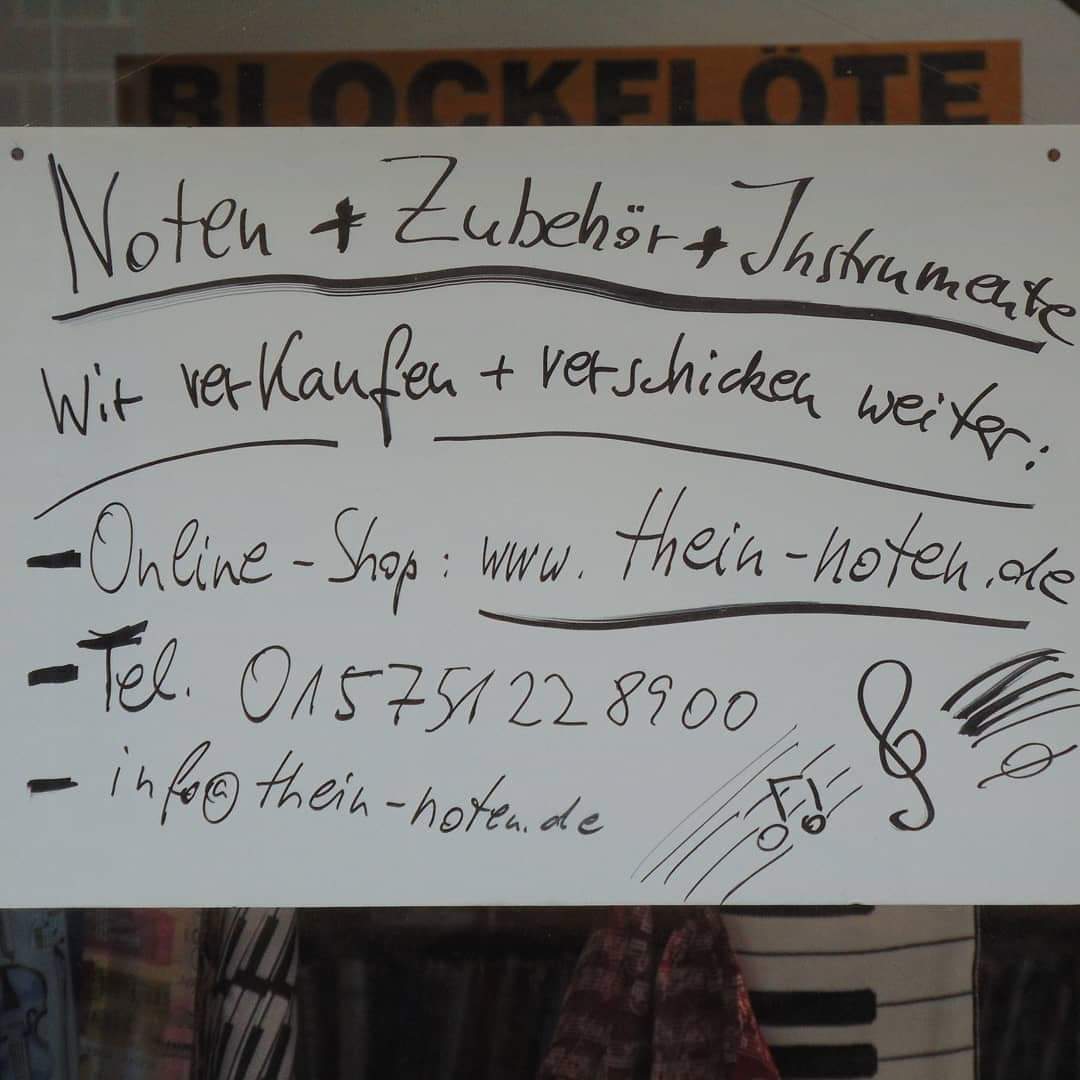 BLOCKFLÖTE
Noten + Zubehör + Instrumente
Wir verkaufen + verschicken weiter:
- Online-Shop: www.thein-noten.de
- Tel. 015751228900
- info@thein-noten.de